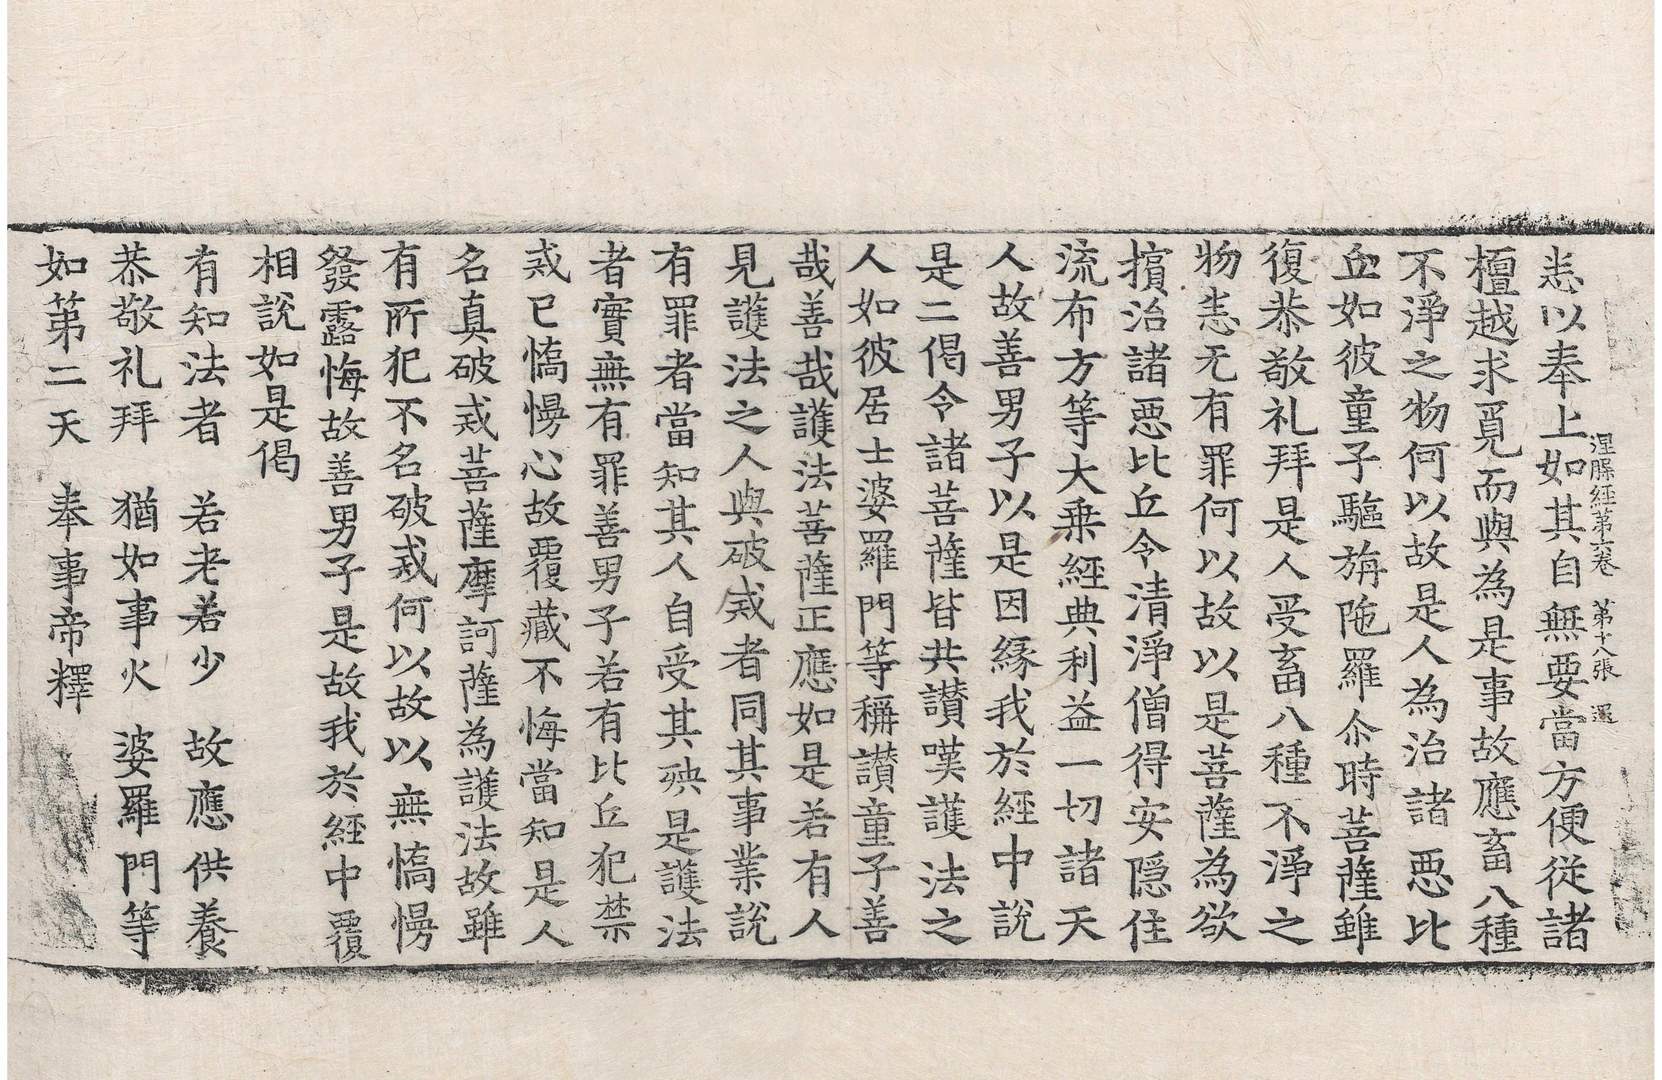 涅槃經第六卷　第十八張　遐
悉以奉上如其自無要當方便從諸
檀越求覓而與為是事故應畜八種
不淨之物何以故是人為治諸惡比
丘如彼童子驅旃陁羅尒時菩薩雖
復恭敬礼拜是人受畜八種不淨之
物悉无有罪何以故以是菩薩為欲
擯治諸惡比丘令清淨僧得安隱住
流布方等大乘經典利益一切諸天
人故善男子以是因緣我於經中說
是二偈令諸菩薩皆共讚嘆護法之
人如彼居士婆羅門等稱讚童子善
哉善哉護法菩薩正應如是若有人
見護法之人與破戒者同其事業說
有罪者當知其人自受其殃是護法
者實無有罪善男子若有比丘犯禁
戒已憍慢心故覆藏不悔當知是人
名真破戒菩薩摩訶薩為護法故雖
有所犯不名破戒何以故以無憍慢
發露悔故善男子是故我於經中覆
相說如是偈
有知法者　若老若少　故應供養
恭敬礼拜　猶如事火　婆羅門等
如第二天　奉事帝釋